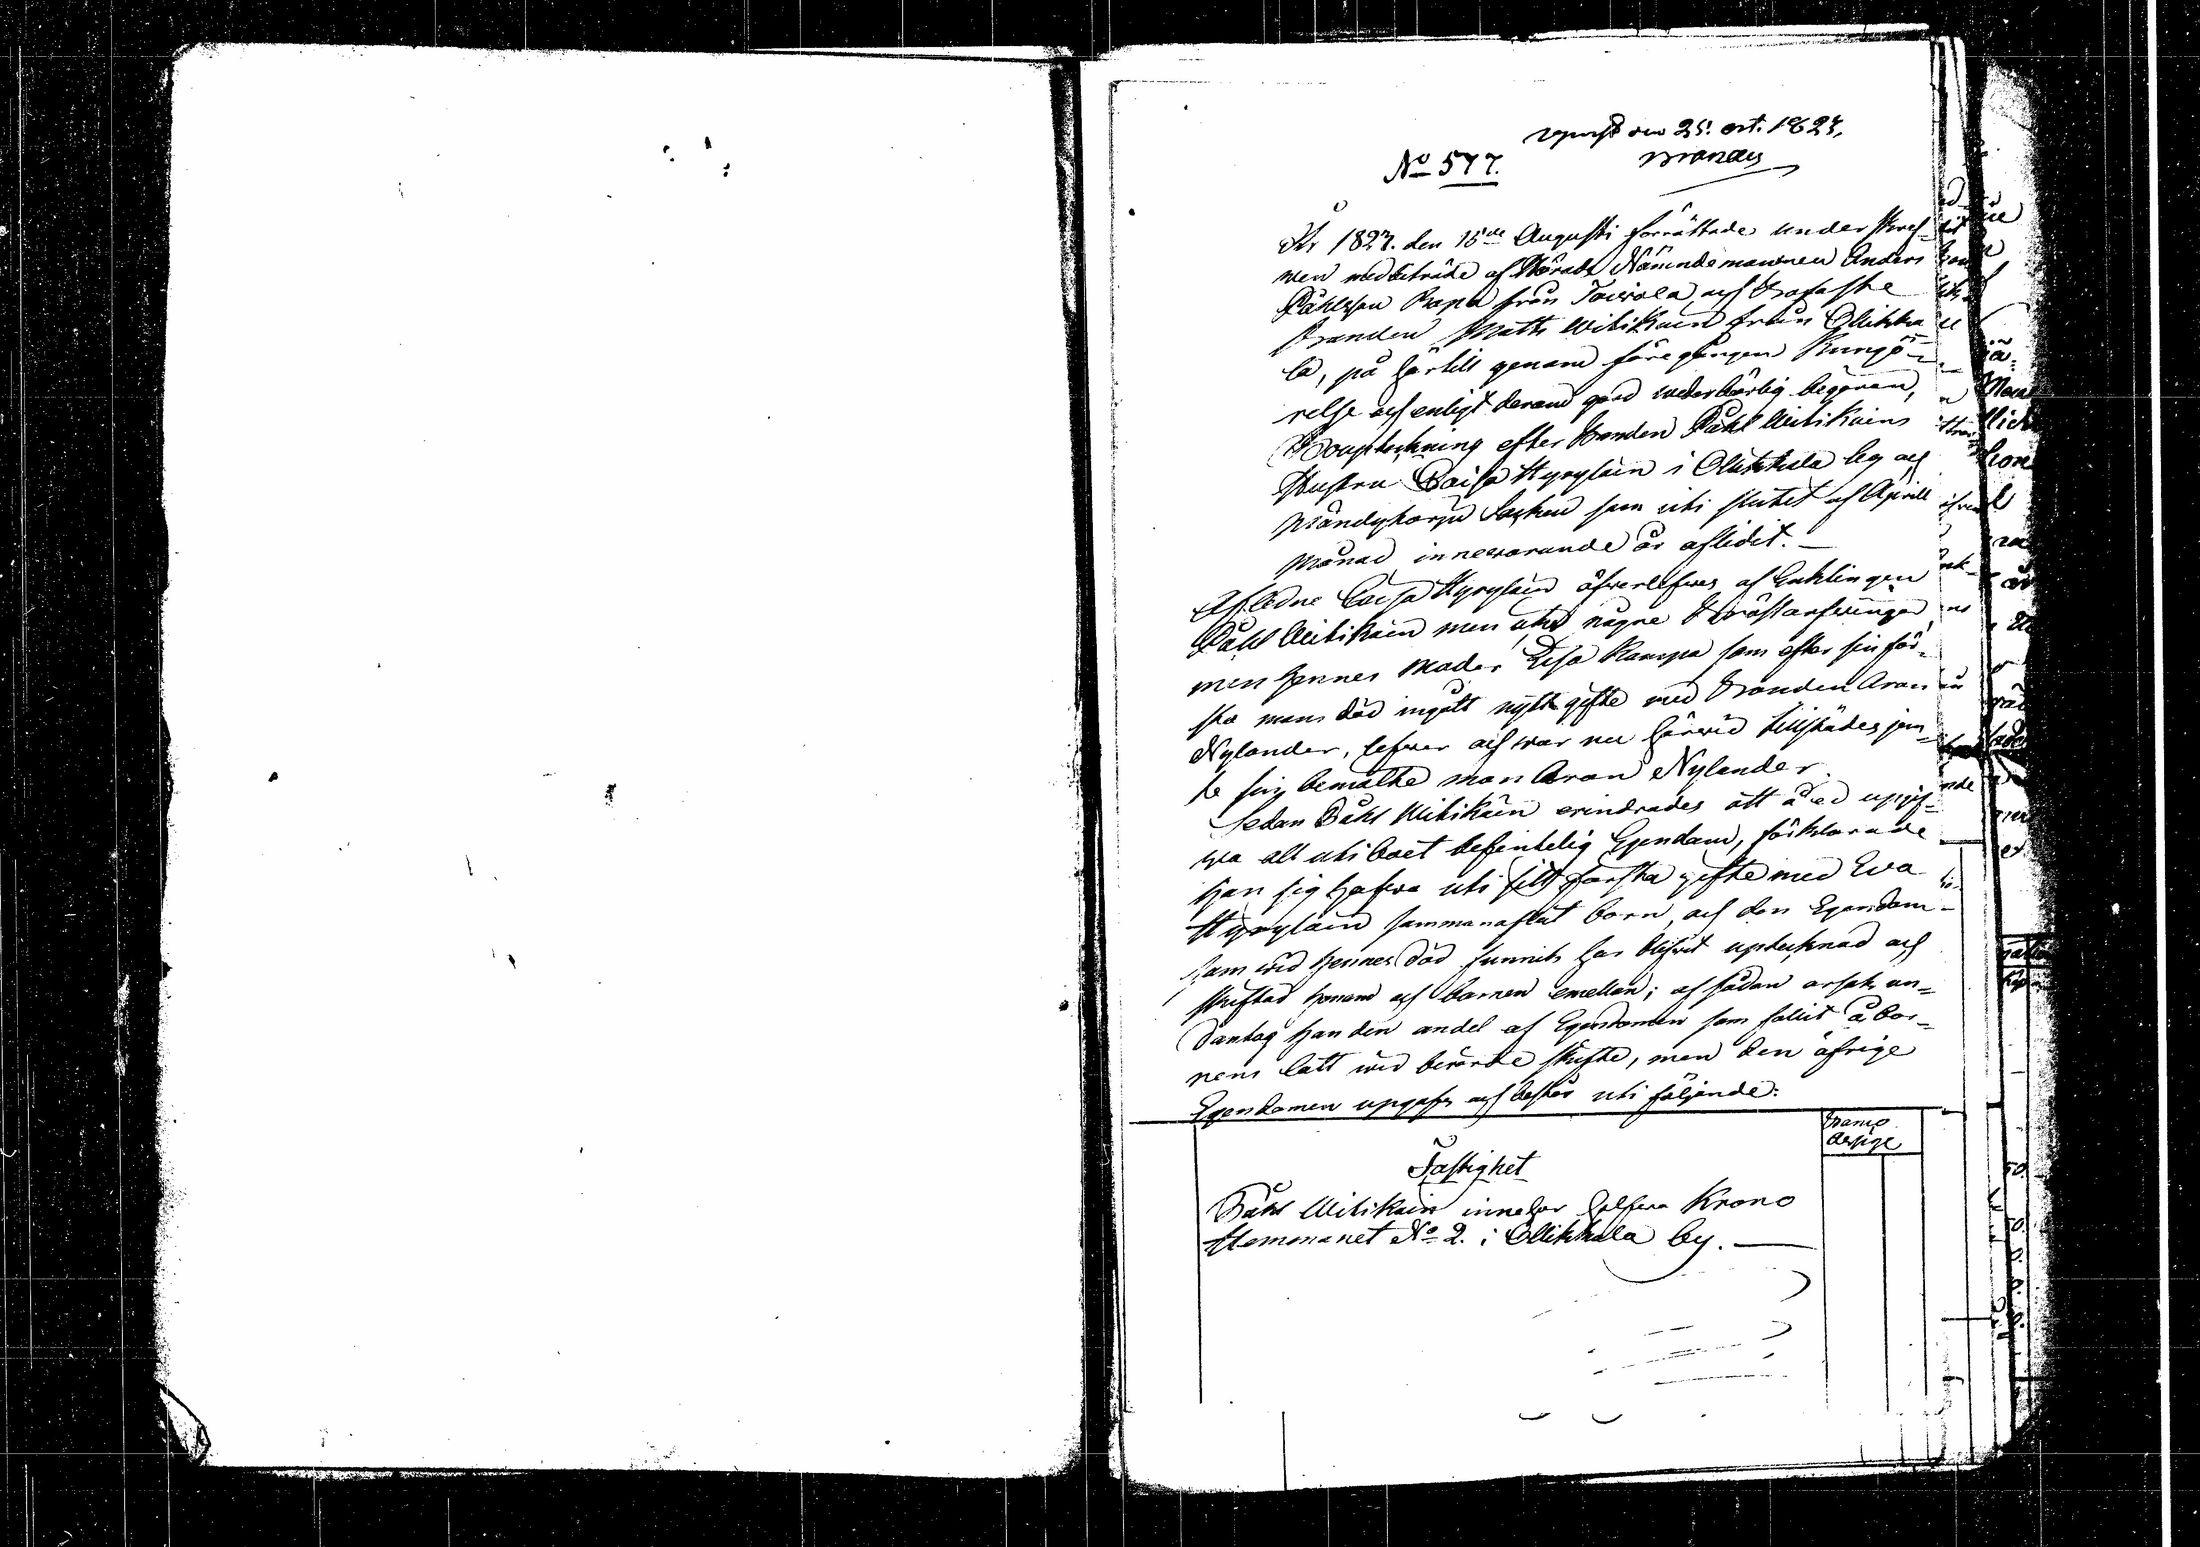 den 25. oct. 1827.
No 577.
År 1827. den 15de Augusti förrättade underskref-
wen med biträde af Härads Nämndemannen Anders
Påhlsson Rapa från Toiwola, och Trofaste
Bonden Matts Mitikain från Ollikka
la, på härtill genom föregången Kungö-
relse och enligt derom gord wederbörlig begäran,
Bouptekning efter Bonden Påhl Mitikains
Hustru Caisa Hyryläin i Ollikkala by och
Mändyharju Sochen som uti slutet af Aprill
månad innewarande år aflidit. —
Aflidne Caisa Hyryläin öfwerlefwes af Enklingen
Påhl Mitikain men utan några Bröstarfwingar,
men hennes moder Lisa Rampa som efter sin för-
sta mans död ingått nytt gifte med Bonden Aron
Nylander, lefwer och war nu härwid tillstädes jem-
te sin bemälte man Aron Nylander.
Sedan Påhl Mitikain erindrades att å ed uppgif-
wa alt uti boet befintelig Egendom, förklarade
han sig hafwa uti sitt första gifte med Ewa
Hyryläin sammanaflat barn, och den Egendom
som wid hennes död funnits har blifwit uptecknad och
skiftad honom och barnen emellan; af sådan orsak un-
dantog han den andel af Egendomen som fallit å bar-
nens lått wid berörde skifte, men den öfrige
Egendomen upgafs och består uti följande:
Banco
Fastighet
Påhl Mitikain innehar halfwa Krono
Hemmanet No 2. i Ollikkala by. —